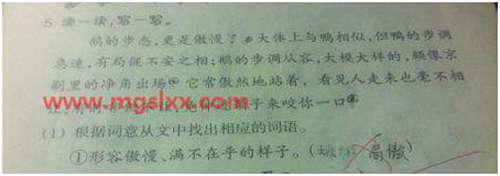 5.读一读,写一写。
鹅的步态,更是傲慢了。大体上与鸭相似,但鸭的步调
急速,有局促不安之相;鹅的步调从容,大模大样的,颇像京
剧里的净角出场。它常傲然地站着,看见人走来也毫不相
www.mgslxx.com 子来咬你一口
(1) 根据词意从文中找出相应的词语。
①形容傲慢、满不在乎的样子。( 高傲